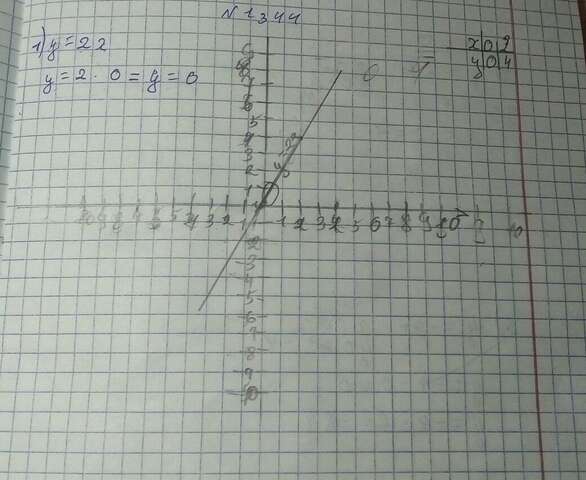 N 1344
1) y = 2x
y = 2 · 0 = y = 0
x 0 2
y 0 4
9
8
7
6
5
4
3
2
1
y=2x
10 9 8 7 6 5 4 3 2 1 1 2 3 4 5 6 7 8 9 10
2
-3
-4
5
6
7
8
9
-10
10